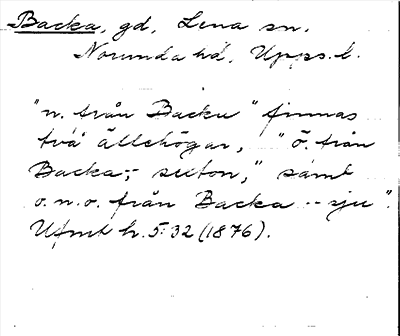 Backa, gd, Lena sn.
Norunda hd, Upps. l.
"n. från Backa" finnas
två ättehögar, "ö. från
Backa,- sexton," samt
o.n.o. från Backa -- sju".
Ufmt h. 5:32 (1876).